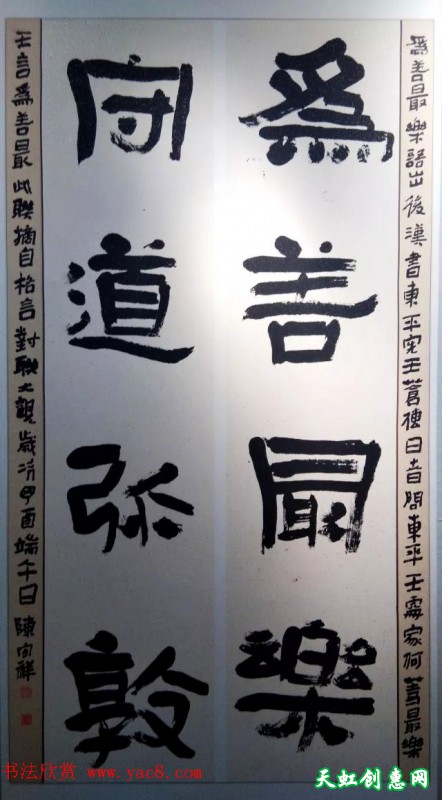 爲善最樂語出後漢書東平憲王蒼傳曰日者問東平王處家何等最樂
爲善最樂
守道弥敦
王言爲善最此聯摘自格言對聯大觀歲次
酉端午日陳
祥
书法欣赏 www.yac8.com
天虹创意网